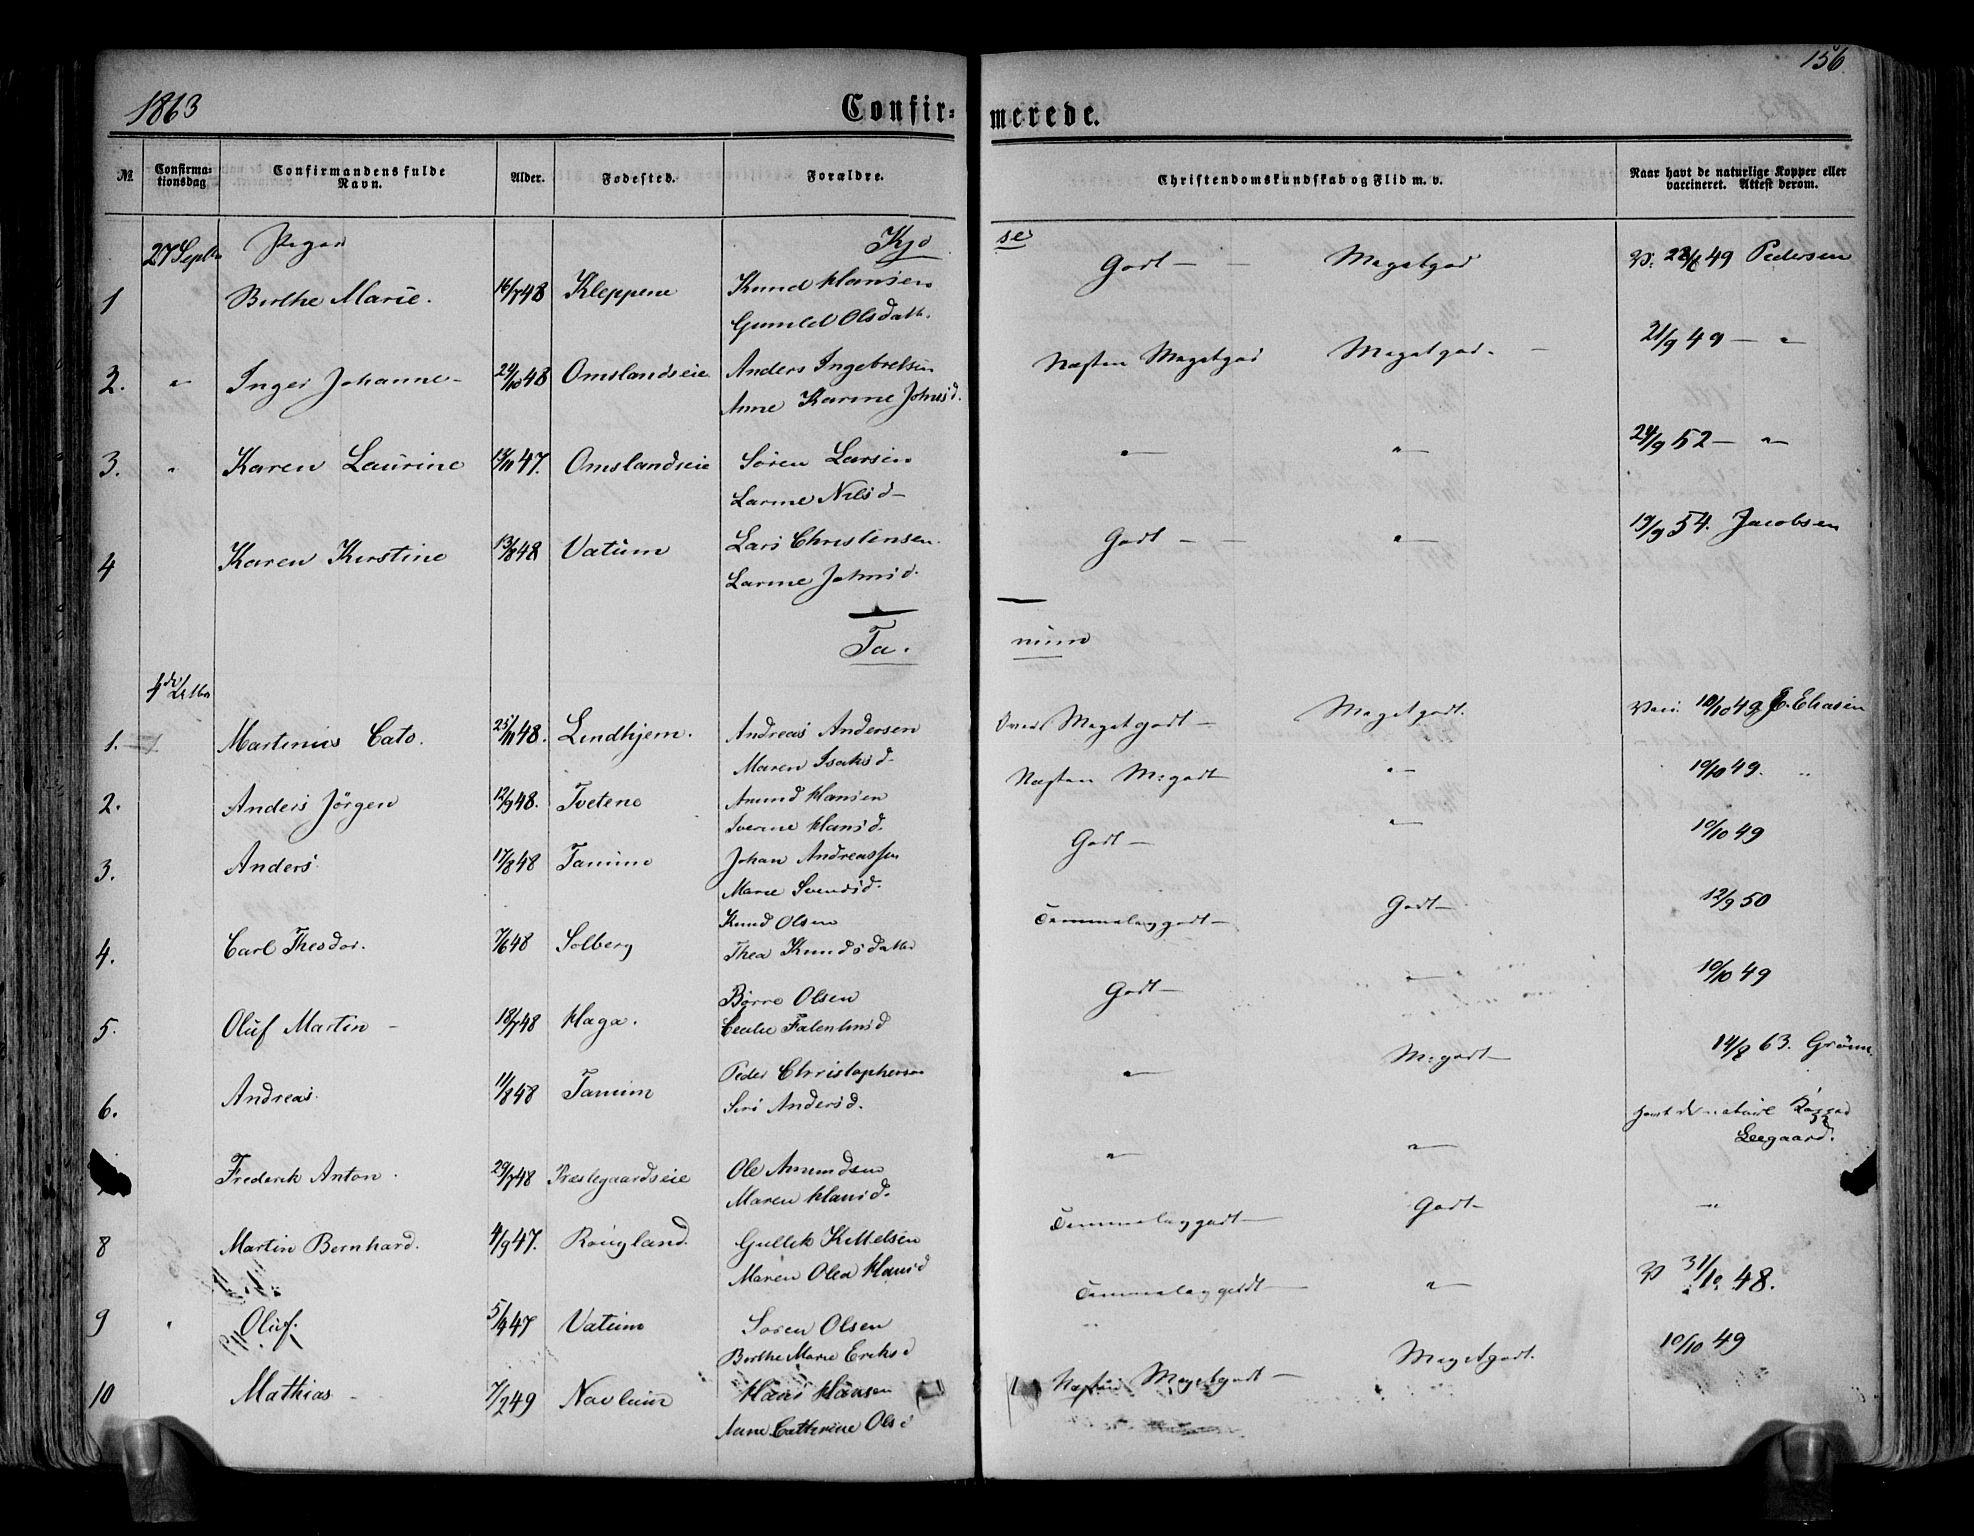 156
1863
Confir= merede.
No. Confirma- tionsdag Confirmandens fulde Navn. Alder. Fødested. Forældre. Christendomskundskab og Flid m. v. Naar havt de naturlige Kopper eller vaccineret. Attest derom.
27 Septbr Piger Kjø se
1 Berthe Marie. 16/7 48 Kleppene Knud Hansen Godt — Megetgod V. 22/6 49 Pedersen
Gunild Olsdatt.
2. " Inger Johanne 29/10 48 Omslandseie Anders Ingebretsen Næsten Megetgod Megetgod. — 21/9 49 — "
Anne Karine Johnsd.
3. " Karen Laurine 13/11 47. Omslandseie Søren Larsen " " 24/9 52 — "
Larine Nilsd —
4 Karen Kirstine 13/8 48 Vatum Lars Christensen. Godt — — " 19/9 54. Jacobsen
Larine Johnsd.
Ta. num
4de Octbr
1. Martinius Cato. 25/11 48. Lindhjem. Andreas Andersen Megetgodt — Megetgodt. Vacc. 10/10 49 E. Eliasen
Maren Isaksd.
2. Anders Jörgen 12/9 48. Tvetene Amund Hansen Næsten M:godt " 10/10 49. "
Hansd.
3. Anders 17/8 48 Tanum Johan Andreassen Godt — " 10/10 49
Marie Svendsd.
4. Carl Theodor. 7/6 48 Solberg Knud Olsen Temmelig godt — Godt — 12/9 50
Thea Knudsdatter
5. Oluf Martin — 18/7 48 Haga. Børre Olsen Godt — " 10/10 49
Falentinsd
6. Andreas 11/8 48 Tanum Peder Christophersen " M:godt 14/8 63. Grønn
Siri Andersd.
Frederik Anton. 29/7 48 Præstegaardseie Ole Amundsen " " havt de naturl Kopper
Leegaard.
Maren Hansd.
8 Martin Bernhard. 4/9 47. Røugland Gullik Kittelsen Temmelig godt — Godt — "
Maren Olea Hansd
9 " Oluf. 5/9 47 Vatum Søren Olsen Temmelig godt — " V 31/10 48.
Berthe Marie Eriksd
10 Mathias — 7/2 49 Navluin Hans Hansen Næsten Megetgodt — Megetgodt. 10/10 49
Anne Cathrine Olsd